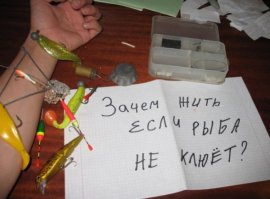 Зачем жить
если рыба
не клюёт?